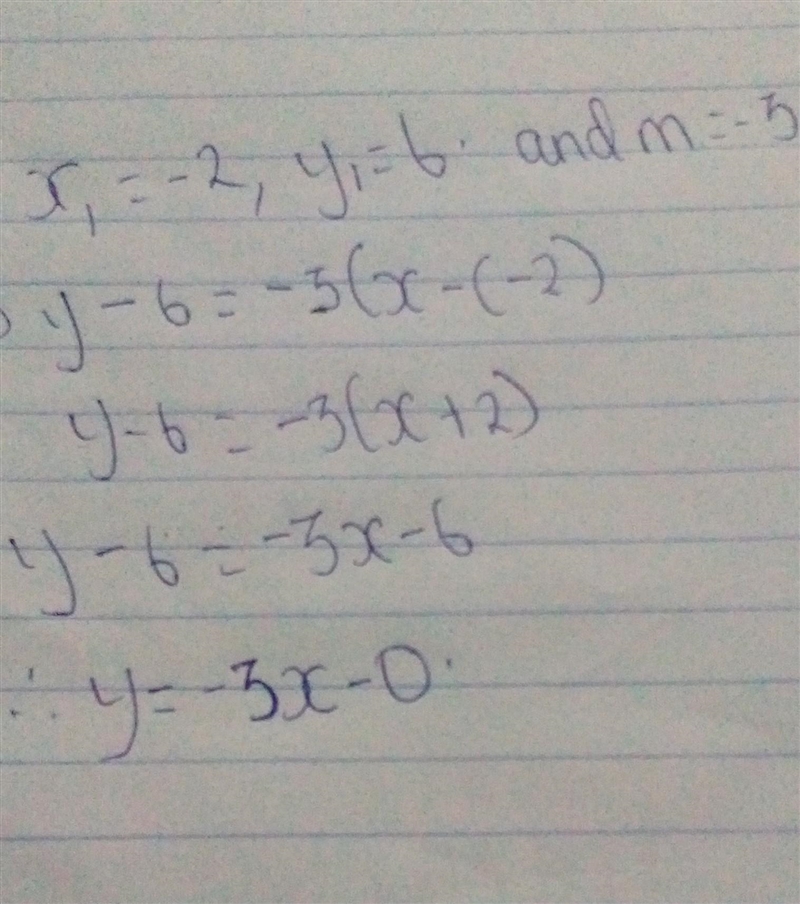 x₁ = -2, y₁ = 6. and m = -3
y - 6 = -3(x - (-2)
y - 6 = -3(x + 2)
y - 6 = -3x - 6
∴ y = -3x - 0.